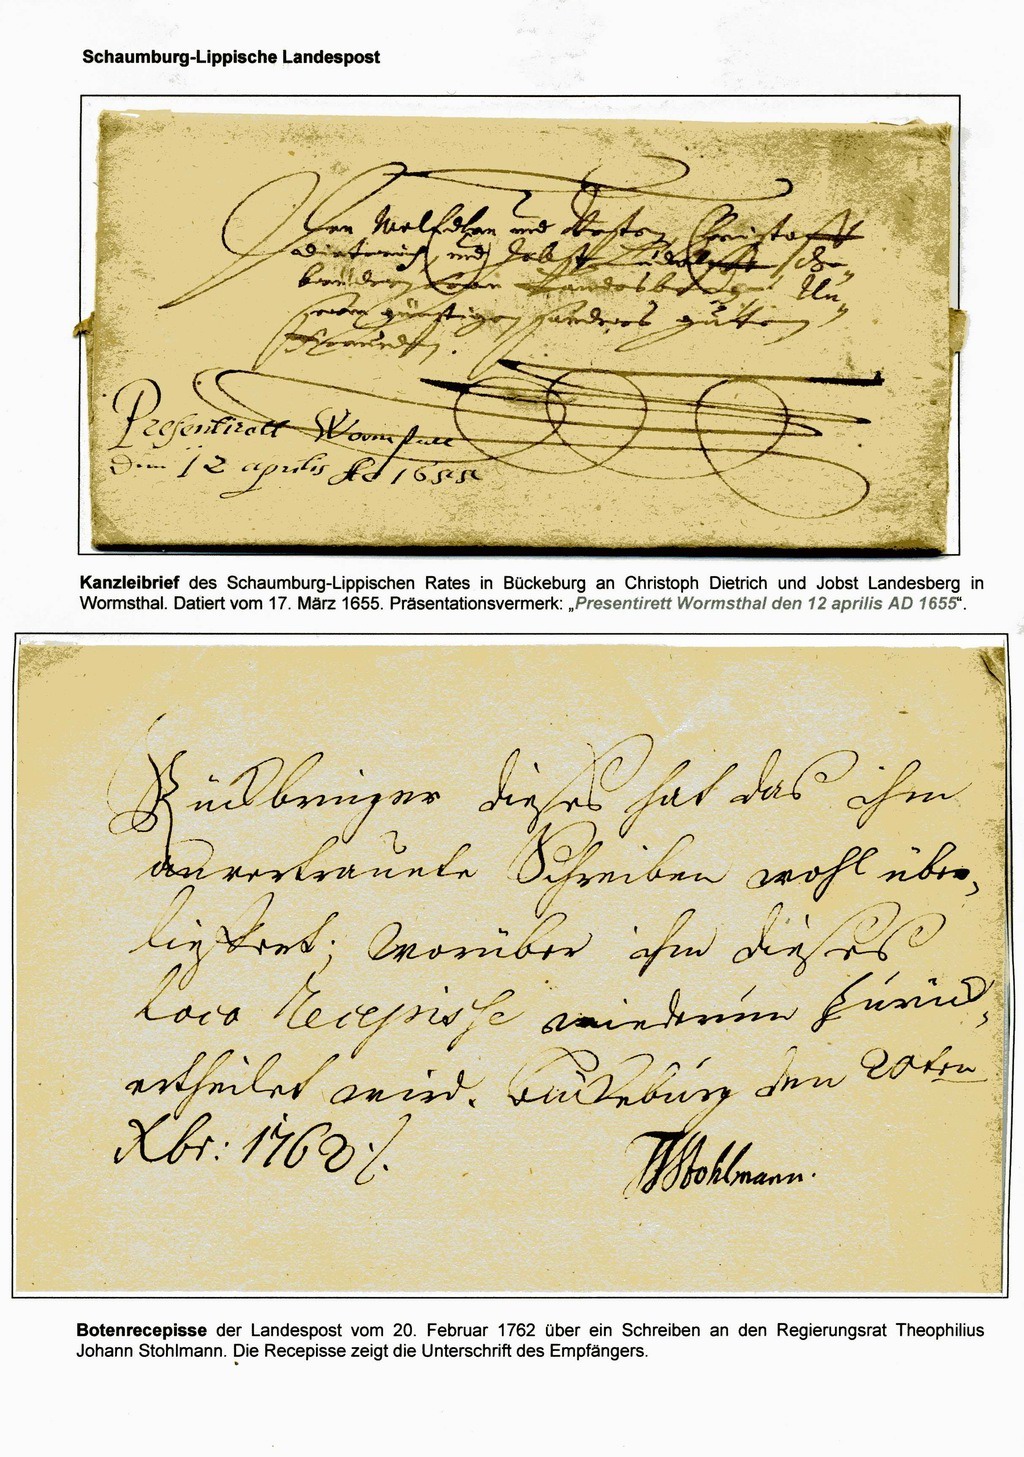 Schaumburg-Lippische Landespost
Christoff
dieterich und Jobst
brüdern von Landesberg Un-
sern günstigen guten
Freunden.
Presentirett Wormstall
Den 12 aprilis Ao 1655
Kanzleibrief des Schaumburg-Lippischen Rates in Bückeburg an Christoph Dietrich und Jobst Landesberg in
Wormsthal. Datiert vom 17. März 1655. Präsentationsvermerk: „Presentirett Wormsthal den 12 aprilis AD 1655“.
Rückbringer dieses hat das ihm
anvertrauete Schreiben wohl über-
liefert; worüber ihm dieses
loco Recepisse wiederum zurück-
ertheilet wird. Bückeburg den 20ten
Xbr: 1762 ./.
Stohlmann.
Botenrecepisse der Landespost vom 20. Februar 1762 über ein Schreiben an den Regierungsrat Theophilius
Johann Stohlmann. Die Recepisse zeigt die Unterschrift des Empfängers.